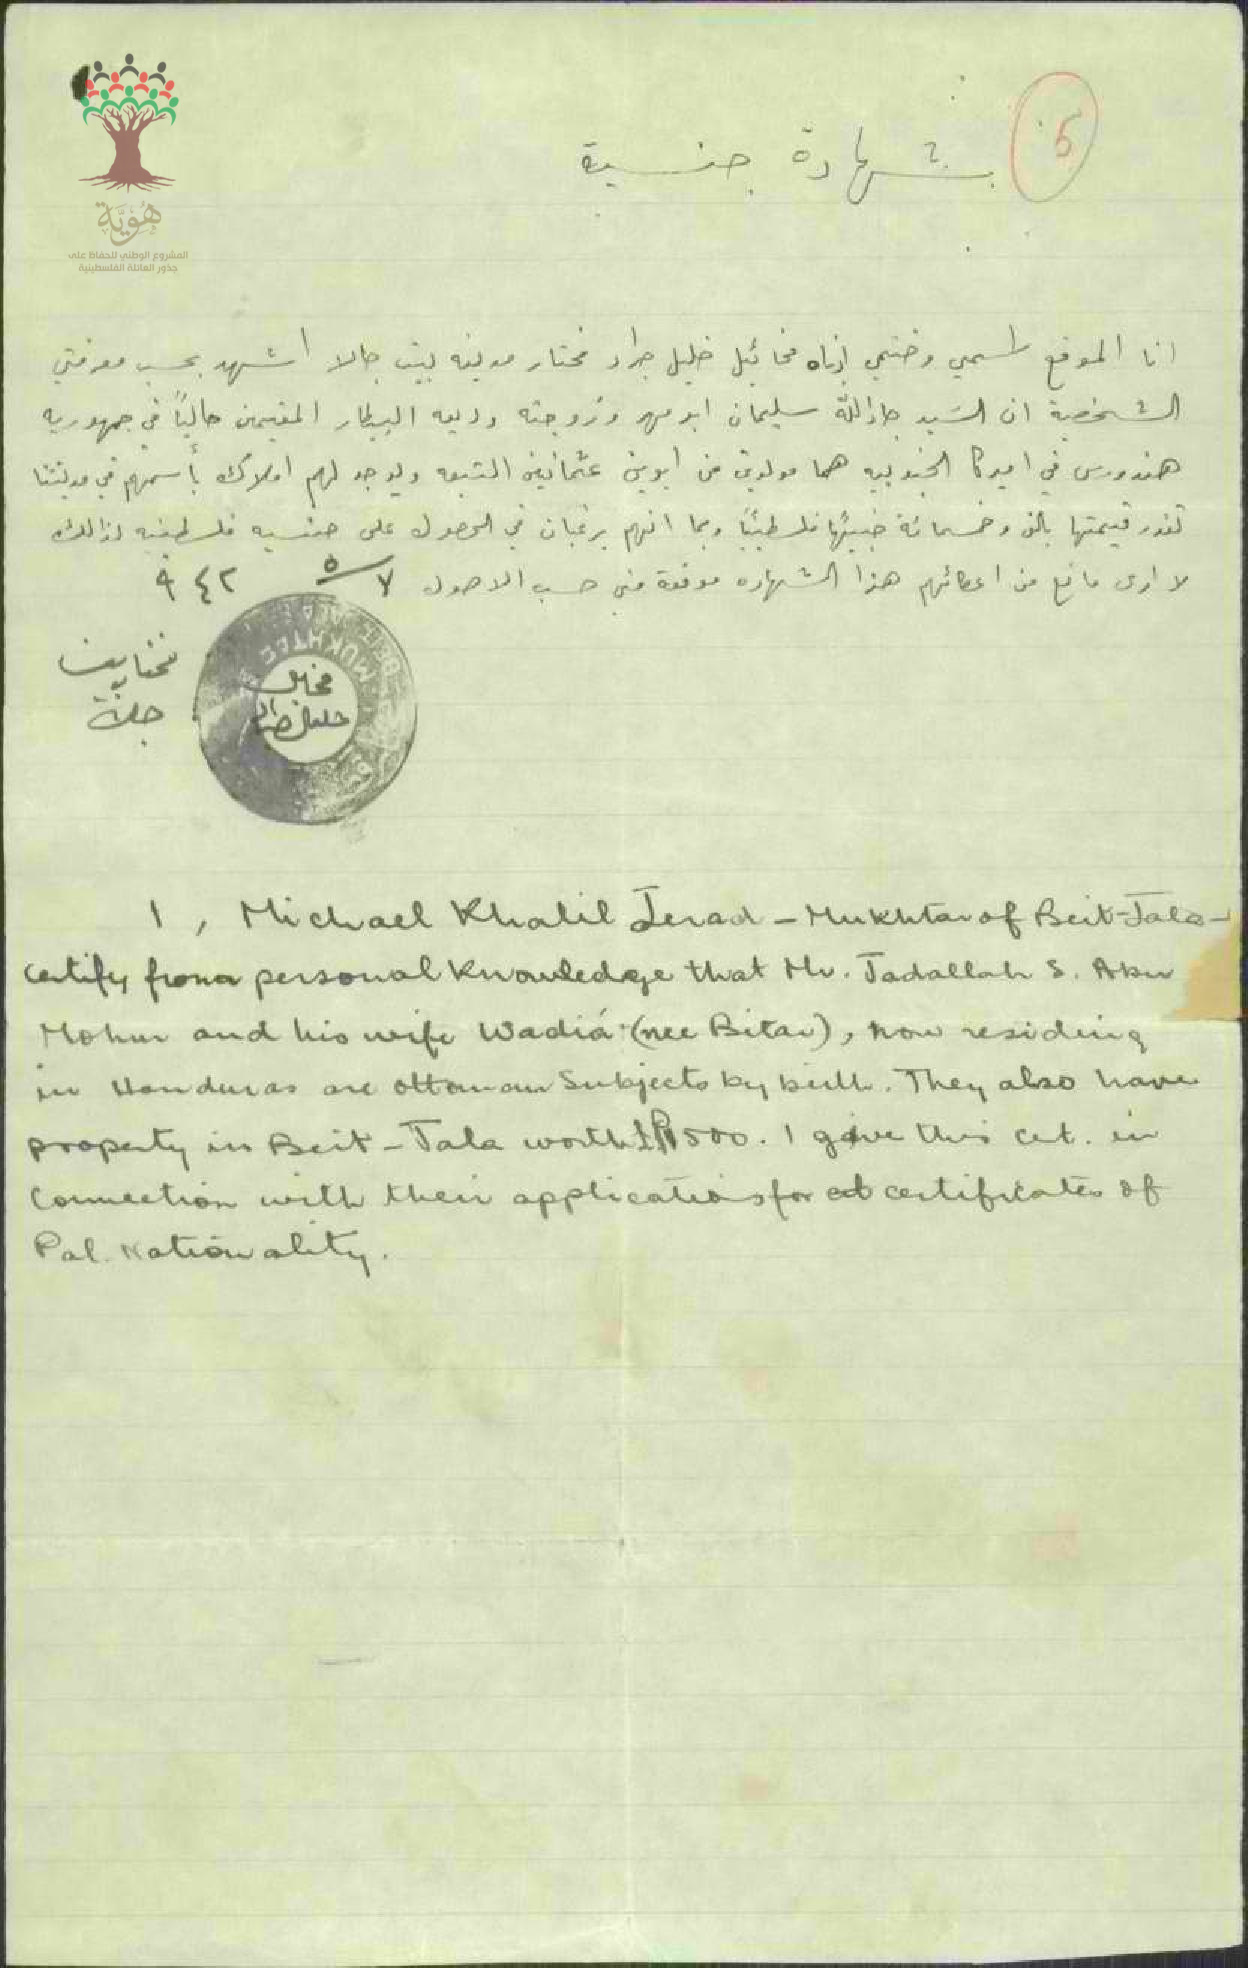 5
شهادة جنسية
هُوِيَّة
المشروع الوطني للحفاظ على
جذور العائلة الفلسطينية
انا الموقع اسمي وختمي ادناه مخائيل خليل جراد مختار مدينه بيت جالا اشهد بحسب معرفتي
الشخصية ان السَيد جادالله سليمان ابو مهر وزوجته وديعه البيطار المقيمين حالياً في جمهوريه
هندورس في اميركا الجنوبيه هما مولودين من ابوين عثمانيين التبعه ويوجد لهم املاك بأسمهم في مدينتنا
تقدر قيمتها بالف وخمسمائة جنيهاً فلسطينياً وبما انهم يرغبان في الحصول على جنسيه فلسطينيه لذالك
لا ارى مانع من اعطائهم هذا الشهاده موقعة مني حسب الاصول ٧/٥ ٩٤٢
مختار بيت
جالا
MUKHTAR
مخايل
خليل
I, Michael Khalil Jerad - Mukhtar of Beit-Jala -
certify from personal knowledge that Mr. Jadallah S. Abu
Mohur and his wife Wadiá (nee Bitar), now residing
in Honduras are Ottoman Subjects by birth. They also have
property in Beit-Jala worth £P1500. I give this cert. in
Connection with their applications for certificates of
Pal. Nationality.